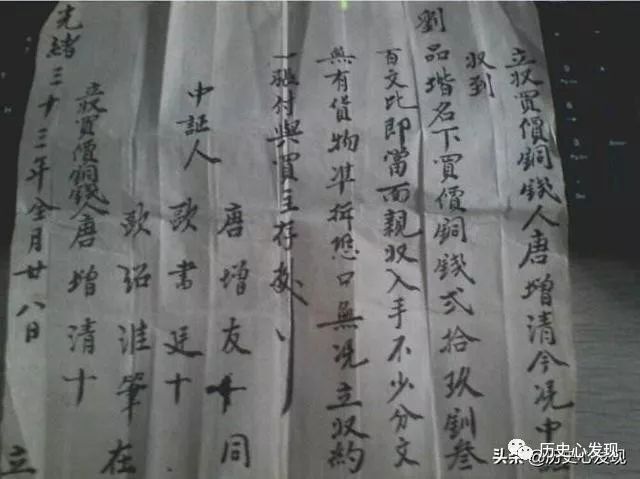 立收買價銅錢人唐增清今凭中証
收到
劉品堦名下買價銅錢弍拾玖釧叁
百文比即當面親收入手不少分文
無有貨物准折恐口無凭立收約
一張付與買主存㨿
中証人
唐增友十同
歐書廷十
歐紹淮筆在
立收買價銅錢人唐增清十
光緒三十三年全月廿八日 立
头条@历史心发现
历史心发现